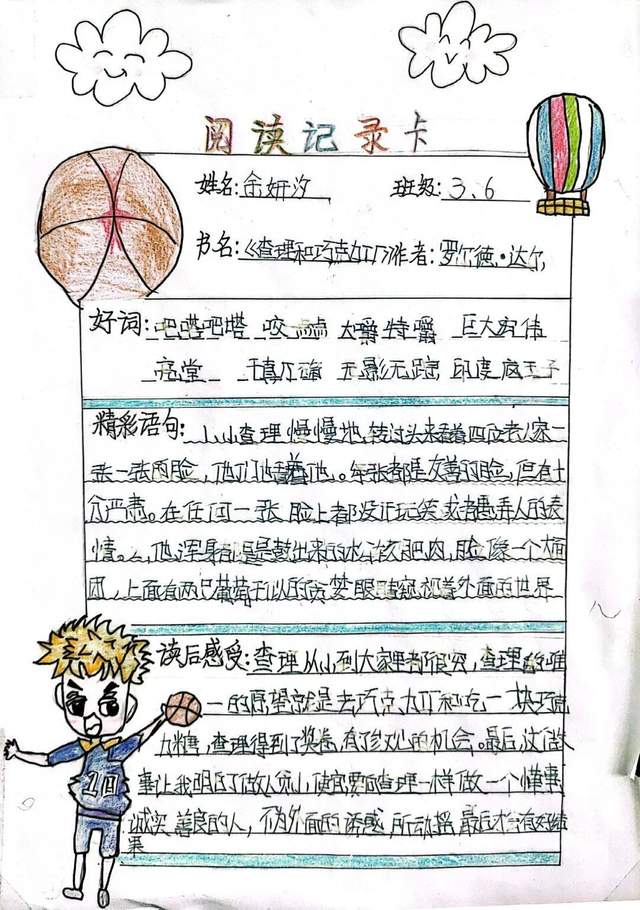 阅读记录卡
姓名:余妍汐 班级:3.6
书名:《查理和巧克力工厂》作者:罗尔德·达尔
好词:吧嗒吧嗒 咬一点点 大嚼特嚼 巨大宏伟
亮堂 千真万确 无影无踪 印度疯王子
精彩语句:1、小查理慢慢地转过头来看着四位老人家一
张一张的脸,他们也看着他。每张都是友善的脸,但有十
分严肃。在任何一张脸上都没有开玩笑或者愚弄人的表
情。2、他浑身都是鼓出来的 肥肉,脸像一个大面
团,上面有两只葡萄干似的贪婪眼睛窥视着外面的世界
读后感受:查理从小到大家里都很穷,查理的唯
一的愿望就是去巧克力工厂和吃一块巧克
力糖,查理得到了奖券,有了参观的机会。最后,这个故
事让我明白了做人 要向查理一样做一个懂事
诚实善良的人,不为外面的诱惑所动摇,最后才会有好结
果
10